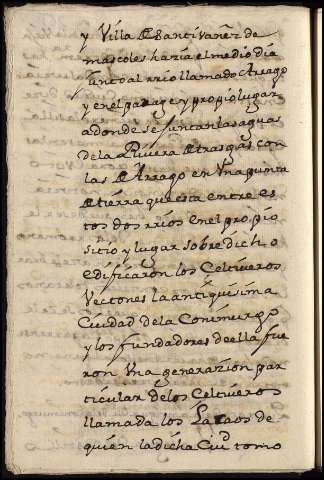 y Villa de Santivañez de
mascoles hazia el medio dia
junto al rrio llamado Arrago
y en el parage y propio lugar
adonde se juntan las aguas
de la Rivera de trasgas con
las de Arrago en Vna punta
de tierra que esta entre es
tos dos rrios en el propio
sitio y lugar sobre dicho
edificaron los Celtiveros
Vectones la antiquisima
Ciudad de la Conimurgo
y los fundadores de ella fue
ron Vna generazion par
ticular de los Celtiveros
llamada los de
quien la dicha Ciud tomo